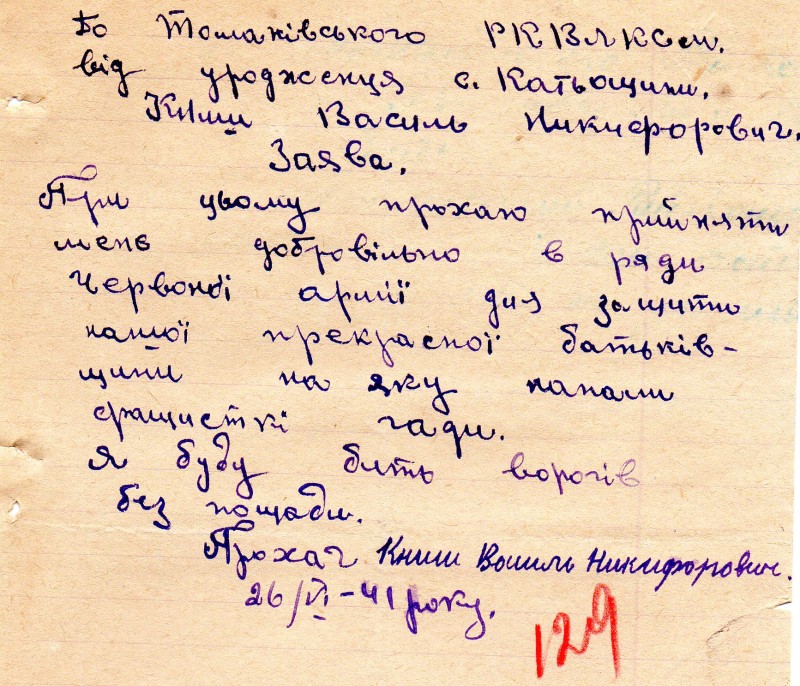 До Томаківського РКВЛКСМ.
від уродженця с. Катьощини.
Книш Василь Никифорович.
Заява.
При цьому прохаю прийняти
мене добровільно в ряди
Червоної армії для защити
нашої прекрасної батьків-
щини на яку напали
фашисткі гади.
Я буду бить ворогів
без пощади.
Прохач Книш Василь Никифорович.
26/VI-41 року.
129